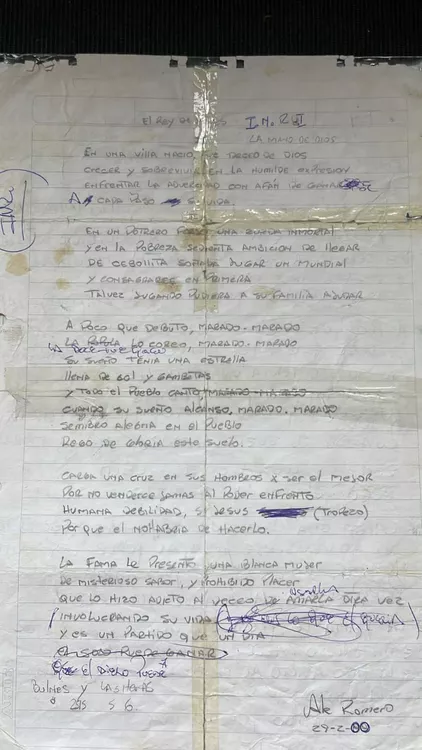 El Rey de
I.N.R.I
LA MANO DE DIOS
EN UNA VILLA NACIO, DESEO DE DIOS
CRECER y SOBREVIVIR EN LA HUMILDE EXPRESION
ENFRENTAR LA ADVERCIDAD CON AFAN DE GANARSE
A CADA PASO SU VIDA.
I.N.R.I
EN UN POTRERO FORJO UNA ZURDA INMORTAL
y EN LA POBREZA SEDIENTA AMBICION DE LLEGAR
DE CEBOLLITA SOÑABA JUGAR UN MUNDIAL
y CONSAGRARSE EN PRIMERA
TALVEZ JUGANDO PUDIERA A SU FAMILIA AYUDAR
A POCO QUE DEBUTO, MARADO. MARADO
LA LO COREO, MARADO. MARADO
SU SUEÑO TENIA UNA ESTRELLA
LLENA DE GOL y GAMBETAS
y TODO EL PUEBLO CANTO, MARADO MARADO
CUANDO SU SUEÑO ALCANSO, MARADO. MARADO
SEMBRO ALEGRIA EN EL PUEBLO
REGO DE GLORIA ESTE SUELO.
CARGA UNA CRUZ EN SUS HOMBROS X SER EL MEJOR
POR NO VENDERCE JAMAS AL PODER ENFRENTO
HUMANA DEBILIDAD, SI JESUS (TROPEZO)
POR QUE EL NO HABRIA DE HACERLO.
LA FAMA LE PRESENTO UNA BLANCA MUJER
DE MISTERIOSO SABOR, y PROHIBIDO PLACER
QUE LO HIZO ADICTO AL DECEO DE USARLA OTRA VEZ
INVOLUCRANDO SU VIDA
y ES UN PARTIDO QUE UN DIA
EL DIEGO
Bulnes y LAS HERAS
215 5 6.
Ale Romero
29-2-00